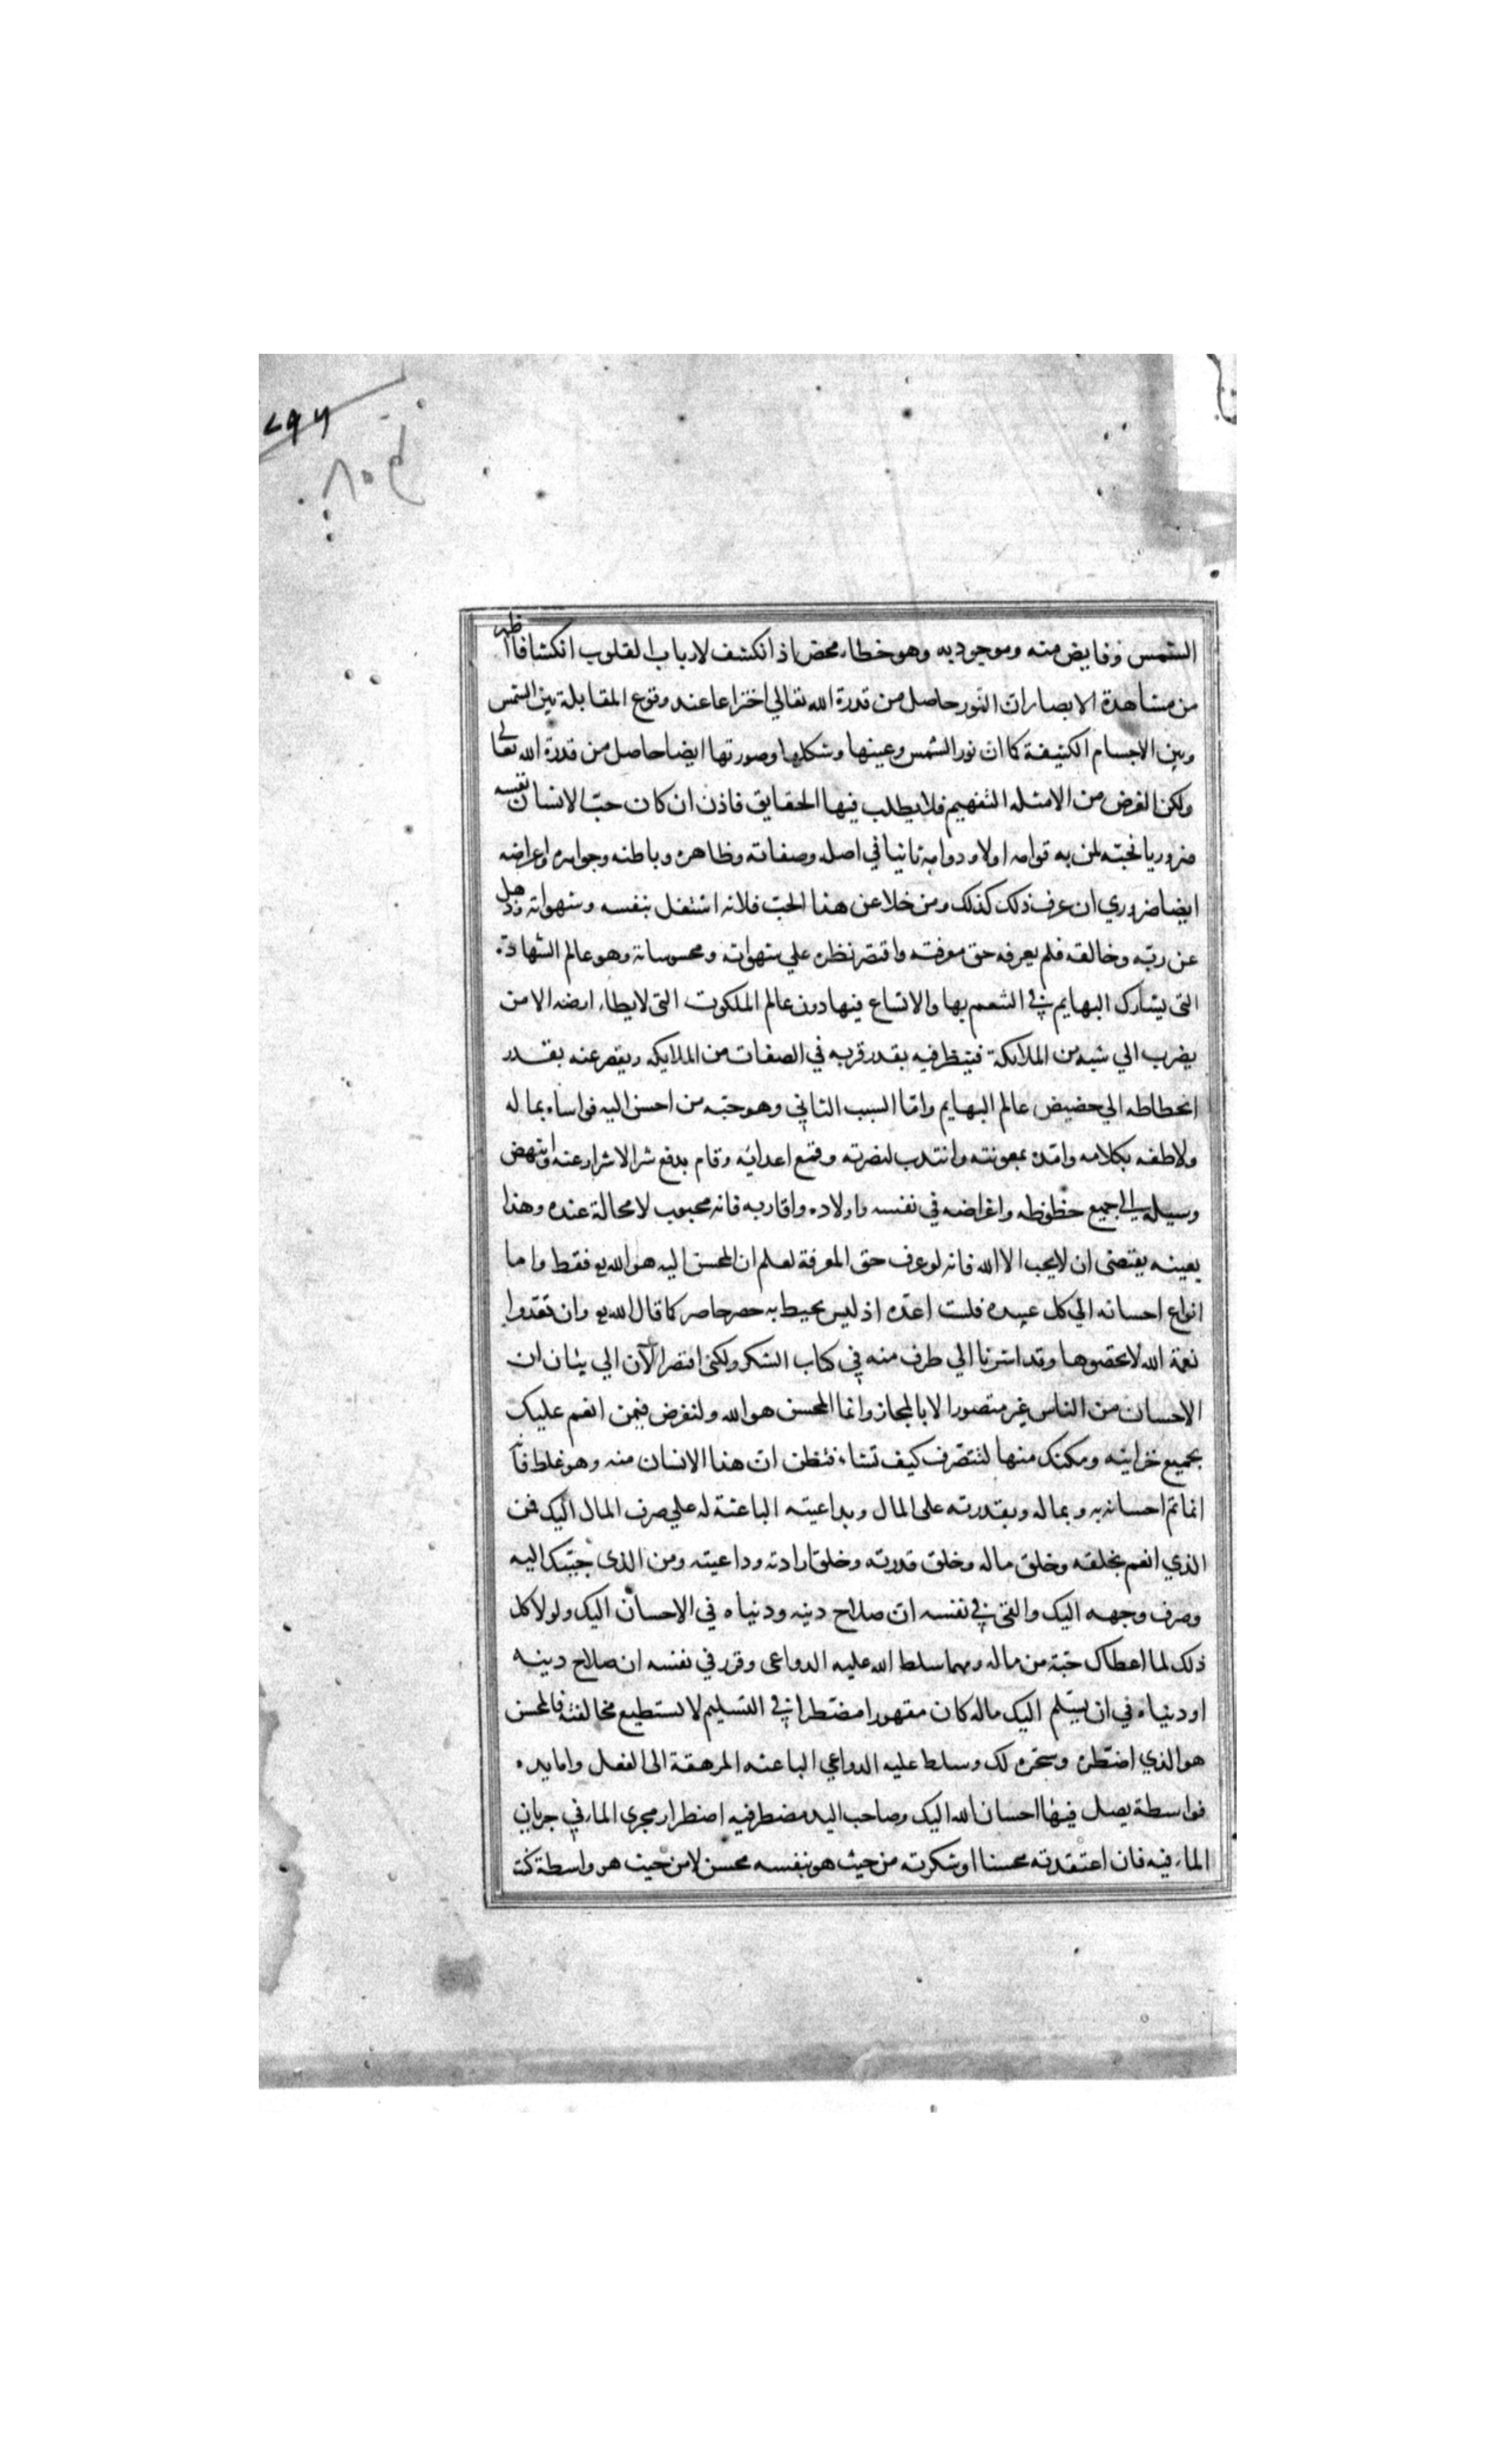 ٧٩٦
٨٠٥
الشمس وفايض منه وموجود به وهو خطاء محض اذ انكشف لارباب القلوب انكشافا اظهر
من مشاهدة الابصار ان النور حاصل من قدرة الله تعالي اختراعا عند وقوع المقابلة بين الشمس
وبين الاجسام الكثيفة كما ان نور الشمس وعينها وشكلها وصورتها ايضا حاصل من قدرة الله تعالي
ولكن الغرض من الامثله التفهيم فلا يطلب فيها الحقايق فاذن ان كان حبّ الانسان نفسه
ضروريا فحبّه لمن به قوامه اولا ودوامه ثانيا في اصله وصفاته وظاهره وباطنه وجواهره واعراضه
ايضا ضروري ان عرف ذلك كذلك ومن خلا عن هذا الحبّ فلانه اشتغل بنفسه وشهواته وذهل
عن ربّه وخالقه فلم يعرفه حق معرفته واقتصر نظره علي شهواته ومحسوساته وهو عالم الشهادة
التى يشارك البهايم في التنعم بها والاتساع فيها دون عالم الملكوت التى لا يطاء ارضه الا من
يضرب الي شبه من الملايكة فينظر فيه بقدر قربه في الصفات من الملايكه ويقصر عنه بقدر
انحطاطه الي حضيض عالم البهايم وامّا السبب الثاني وهو حبّه من احسن اليه فواساه بماله
ولاطفه بكلامه وامّده بمعونته وانتدب لنصرته وقمع اعدائه وقام بدفع شر الاشرار عنه وانتهض
وسيله الي جميع حظوظه واغراضه في نفسه واولاده واقاربه فانه محبوب لا محالة عنده وهذا
بعينه يقتضى ان لا يحب الا الله فانه لو عرف حق المعرفة لعلم ان المحسن اليه هو الله فقط واما
انواع احسانه الي كل عبيده فلست اعدّه اذ ليس يحيط به حصر حاصر كما قال الله وان تعدّوا
نعمة الله لا تحصوها وقد اشرنا الي طرف منه في كتاب الشكر ولكنى اقتصر الآن الي بيان ان
الاحسان من الناس غير متصور الا بالمجاز وانما المحسن هو الله ولنفرض فيمن انعم عليك
بجميع خزاينه ومكنك منها لتتصّرف كيف تشاء فتظن ان هذا الانسان منه وهو غلط فانّه
انما تم احسانه به وبماله وبقدرته على المال وبداعيته الباعثة له علي صرف المال اليك فمن
الذي انعم بخلقه وخلق ماله وخلق قدرته وخلق ارادته وداعيته ومن الذى حبّبك اليه
وصرف وجهه اليك والقى في نفسه ان صلاح دينه ودنياه في الاحسان اليك ولولا كل
ذلك لما اعطاك حبّة من ماله ومهما سلط الله عليه الدواعى وقرر في نفسه ان صلاح دينه
او دنياه في ان يسّلم اليك ماله كان مقهورا مضّطرا في التسليم لا يستطيع مخالفته فالمحسن
هو الذي اضّطره وسخّره لك وسلط عليه الدواعي الباعثه المرهقة الى الفعل واما يده
فواسطة يصل فيها احسان الله اليك وصاحب اليد مضطر فيه اضطرار مجرى الماء في جريان
الماء فيه فان اعتقدته محسنا او شكرته من حيث هو بنفسه محسن لا من حيث هو واسطة كنت